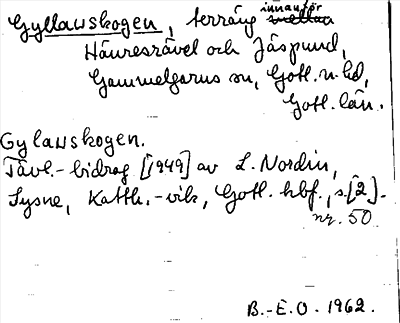 Gyllauskogen, terräng innanför
Häuresrävel och Jäspund,
Gammelgarns sn, Gotl. n. hd,
Gotl. län.
Gylauskogen.
Tävl.-bidrag [1949] av L. Nordin,
Sysne, Katth.-vik, Gotl. hbf., s. [2].
nr. 50
B.-E.O. 1962.